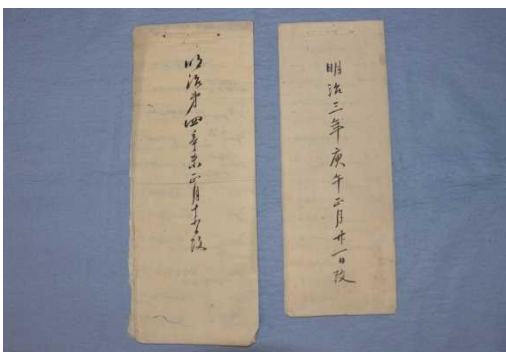 明治三年庚午正月廿一日改
明治第四辛未正月十